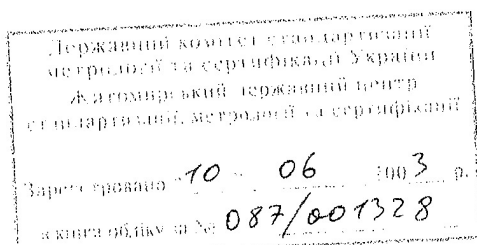 Державний комітет стандартизації
метрології та сертифікації України
Житомирський державний центр
стандартизації, метрології та сертифікації
Зареєстровано "10" 06 2003 р.
в книзі обліку за № 087/001328